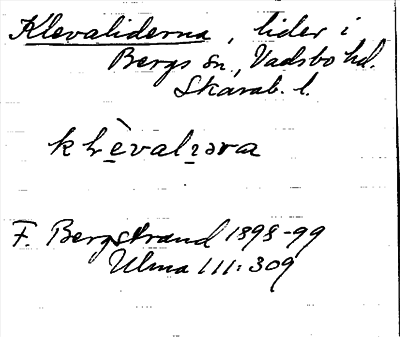 Klevaliderna, lider i
Bergs sn., Vadsbo hd.
Skarab. l.
F. Bergstrand 1898-99
Ulma 111:309